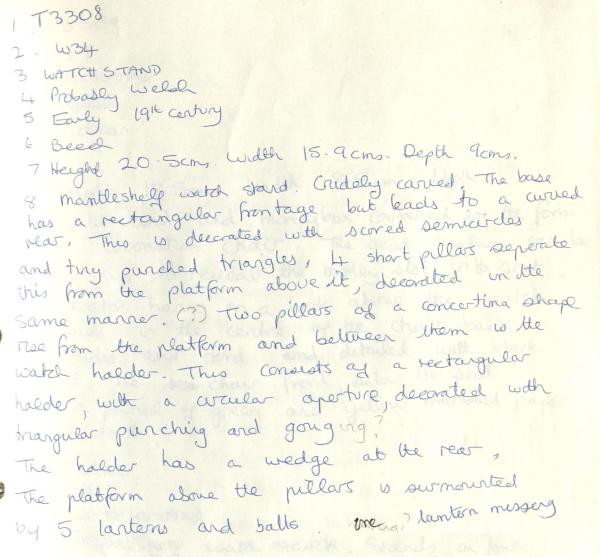 1 T3308
2. W34
3 WATCH STAND
4 Probably Welsh
5 Early 19th century
6 Beech
7 Height 20.5cms. Width 15.9cms. Depth 9cms.
8 Mantleshelf watch stand. Crudely carved. The base
has a rectangular frontage but leads to a curved
rear. This is decorated with scored semicircles
and tiny punched triangles, 4 short pillars seperate
this from the platform above it, decorated in the
same manner. (?) Two pillars of a concertina shape
rise from the platform and between them is the
watch holder. This consists of a rectangular
holder, with a circular aperture, decorated with
triangular punching and gouging?
The holder has a wedge at the rear.
The platform above the pillars is surmounted
by 5 lanterns and balls. one lantern missing